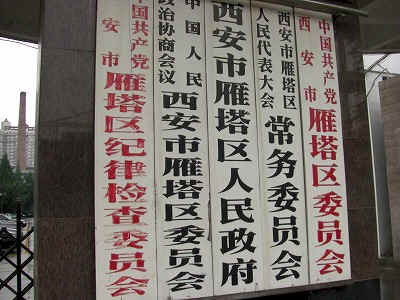 中国共产党
西安市
雁塔区委员会
西安市雁塔区
人民代表大会
常务委员会
西安市雁塔区人民政府
中国人民
政治协商会议
西安市雁塔区委员会
中国共产党
西安市
雁塔区纪律检查委员会